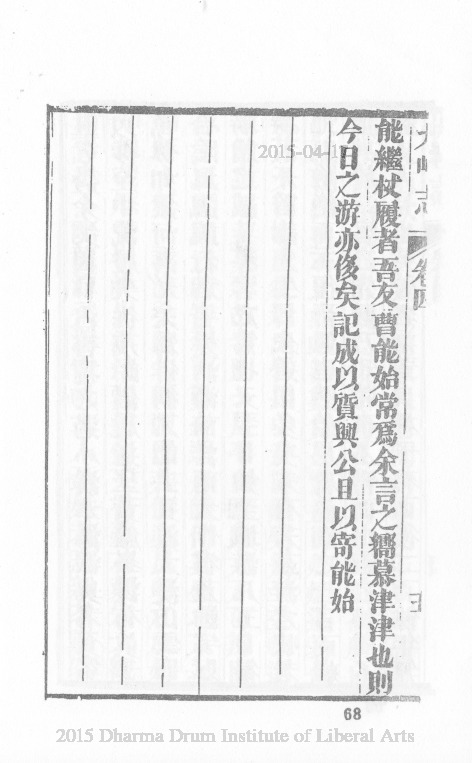 志
卷四
能繼杖履者吾友曹能始常爲余言之嚮慕津津也則
今日之游亦俊矣記成以質興公且以寄能始
2015-04-1
68
2015 Dharma Drum Institute of Liberal Arts